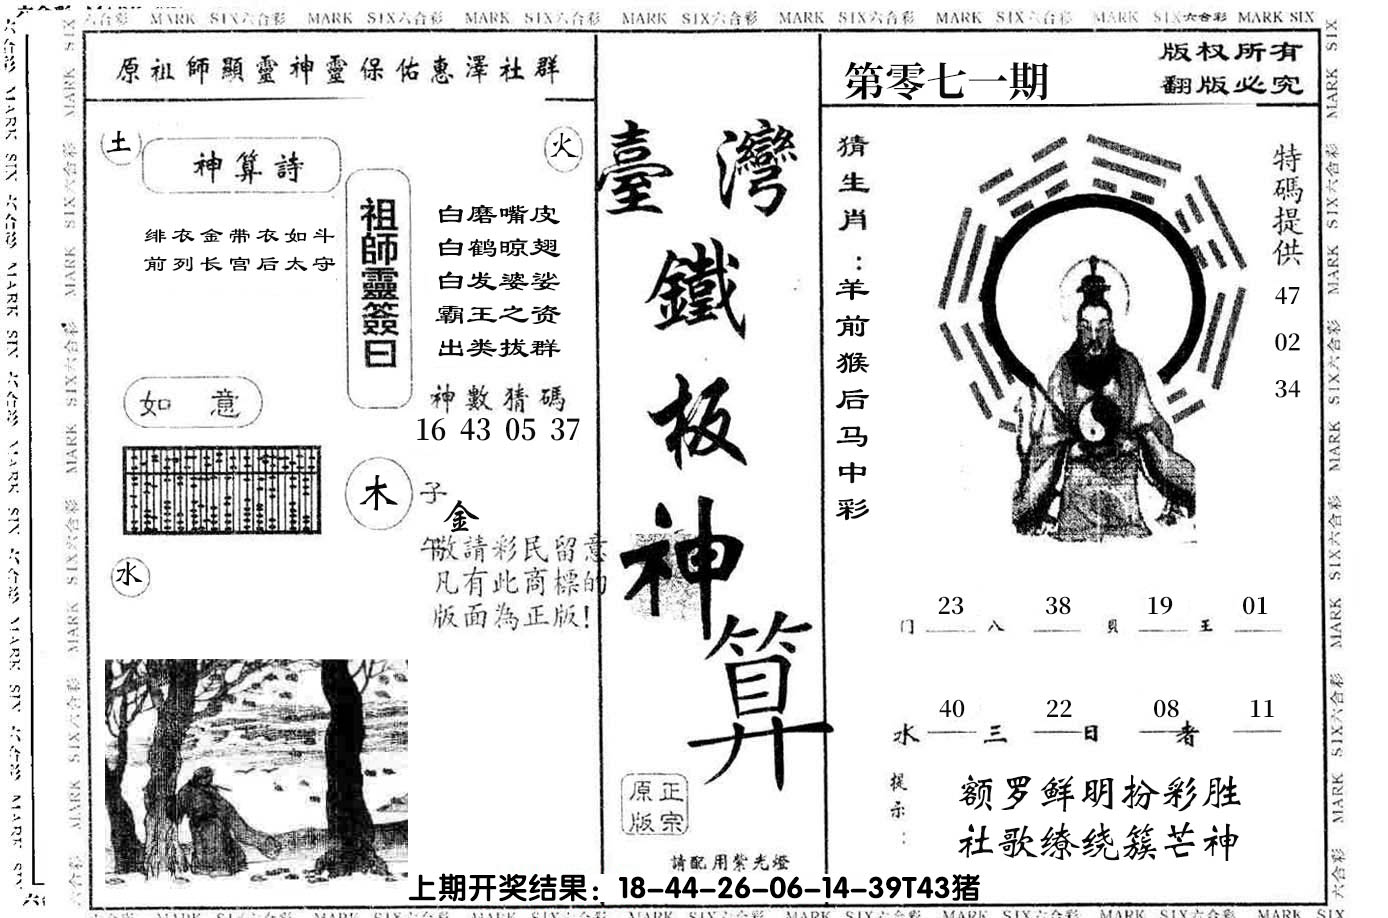 MARK SIX六合彩 MARK SIX六合彩 MARK SIX六合彩 MARK SIX六合彩 MARK SIX六合彩 MARK SIX六合彩 MARK SIX六合彩 MARK SIX
原祖師顯靈神靈保佑惠澤社群
土
神算詩
火
绯衣金带衣如斗
前列长宫后太守
祖師靈簽曰
白磨嘴皮
白鹤晾翅
白发婆娑
霸王之资
出类拔群
如意
神數猜碼
16 43 05 37
木
子
金
午
敬請彩民留意
凡有此商標的
版面為正版!
水
臺灣
鐵
板
神
算
正宗
原版
請配用紫光燈
第零七一期
版权所有
翻版必究
猜生肖:羊前猴后马中彩
特碼提供
47
02
34
23 38 19 01
门 八 贝 王
40 22 08 11
水 三 日 者
提示:
额罗鲜明扮彩胜
社歌缭绕簇芒神
上期开奖结果：18-44-26-06-14-39T43猪